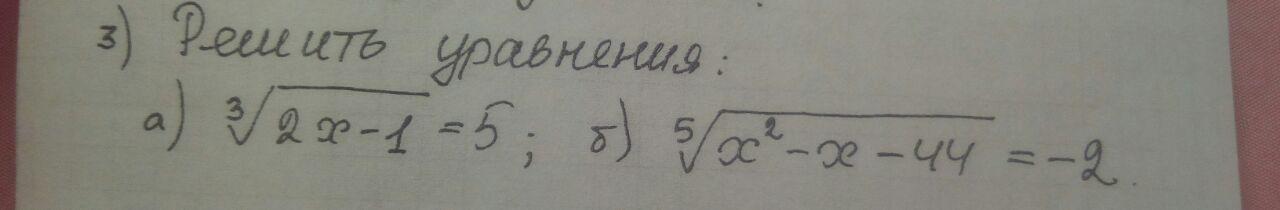 3) Решить уравнения:
а) ∛(2x-1) = 5; б) ⁵√(x²-x-44) = -2.